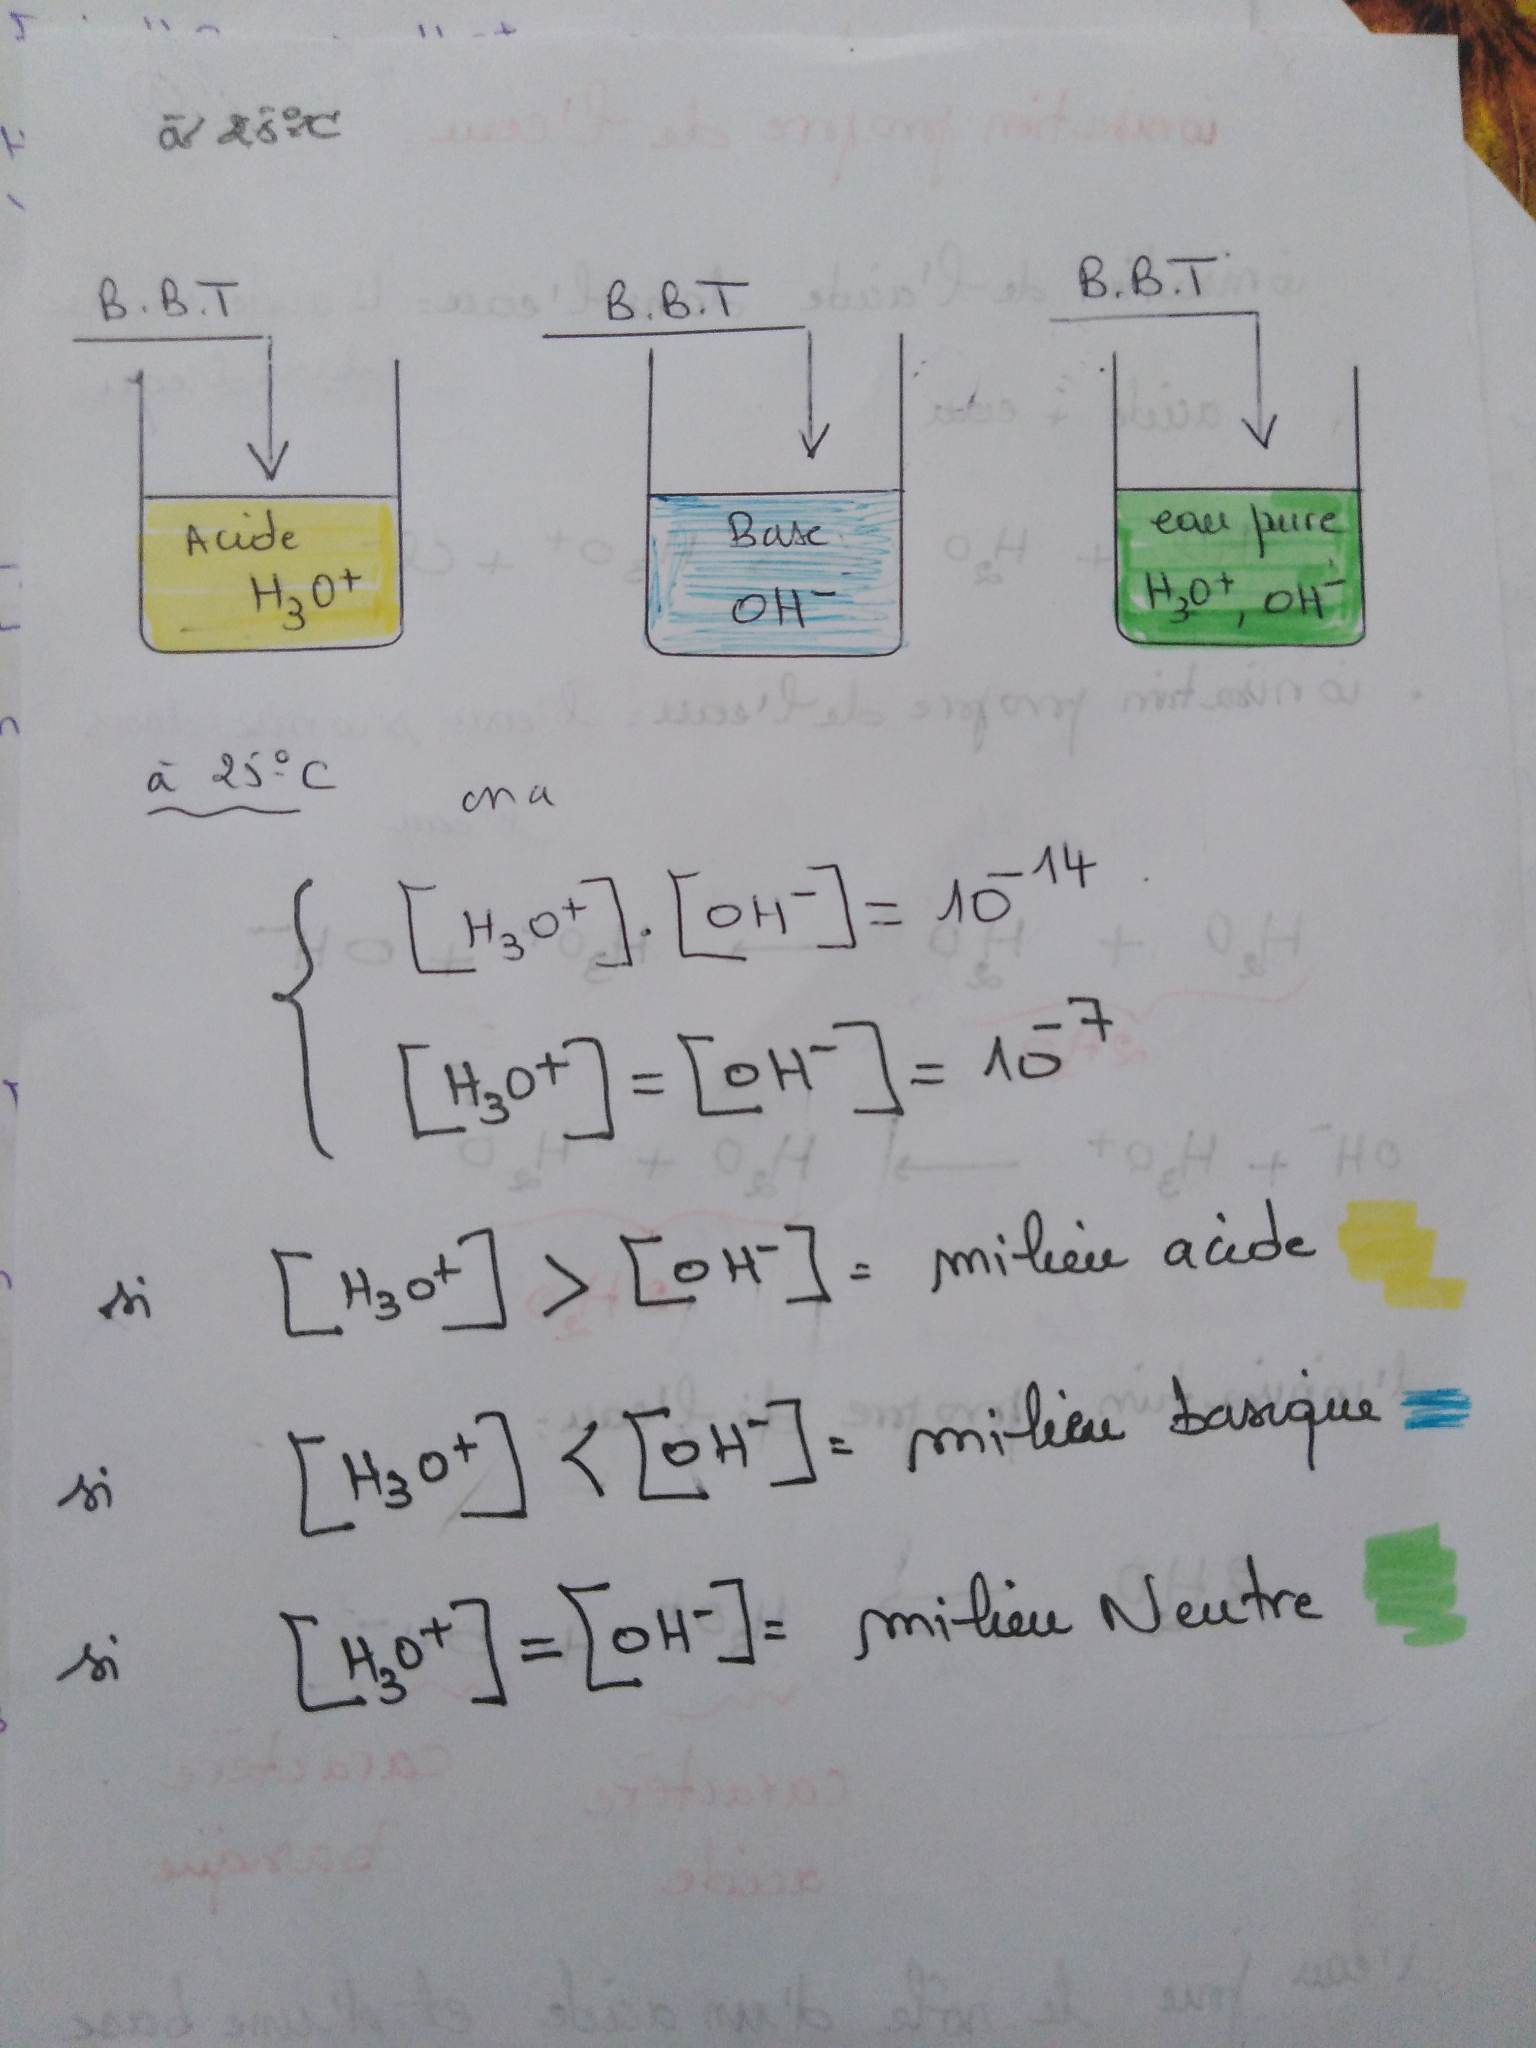 à 25°C
B.B.T B.B.T B.B.T
Acide Base eau pure
H₃O⁺ OH⁻ H₃O⁺, OH⁻
à 25°C on a
[H₃O⁺].[OH⁻] = 10⁻¹⁴
[H₃O⁺] = [OH⁻] = 10⁻⁷
si [H₃O⁺] > [OH⁻] = milieu acide
si [H₃O⁺] < [OH⁻] = milieu basique
si [H₃O⁺] = [OH⁻] = milieu Neutre